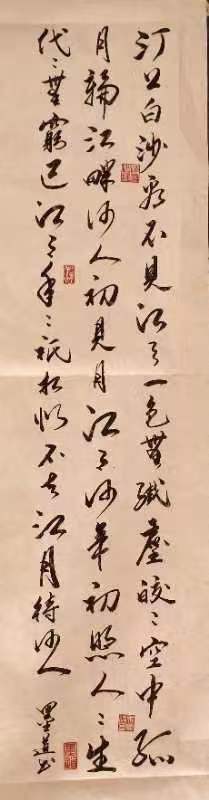 汀上白沙看不見江天一色無纖塵皎〻空中孤
月輪江畔何人初見月江月何年初照人〻生
代〻無窮已江月年〻祇相似不知江月待何人